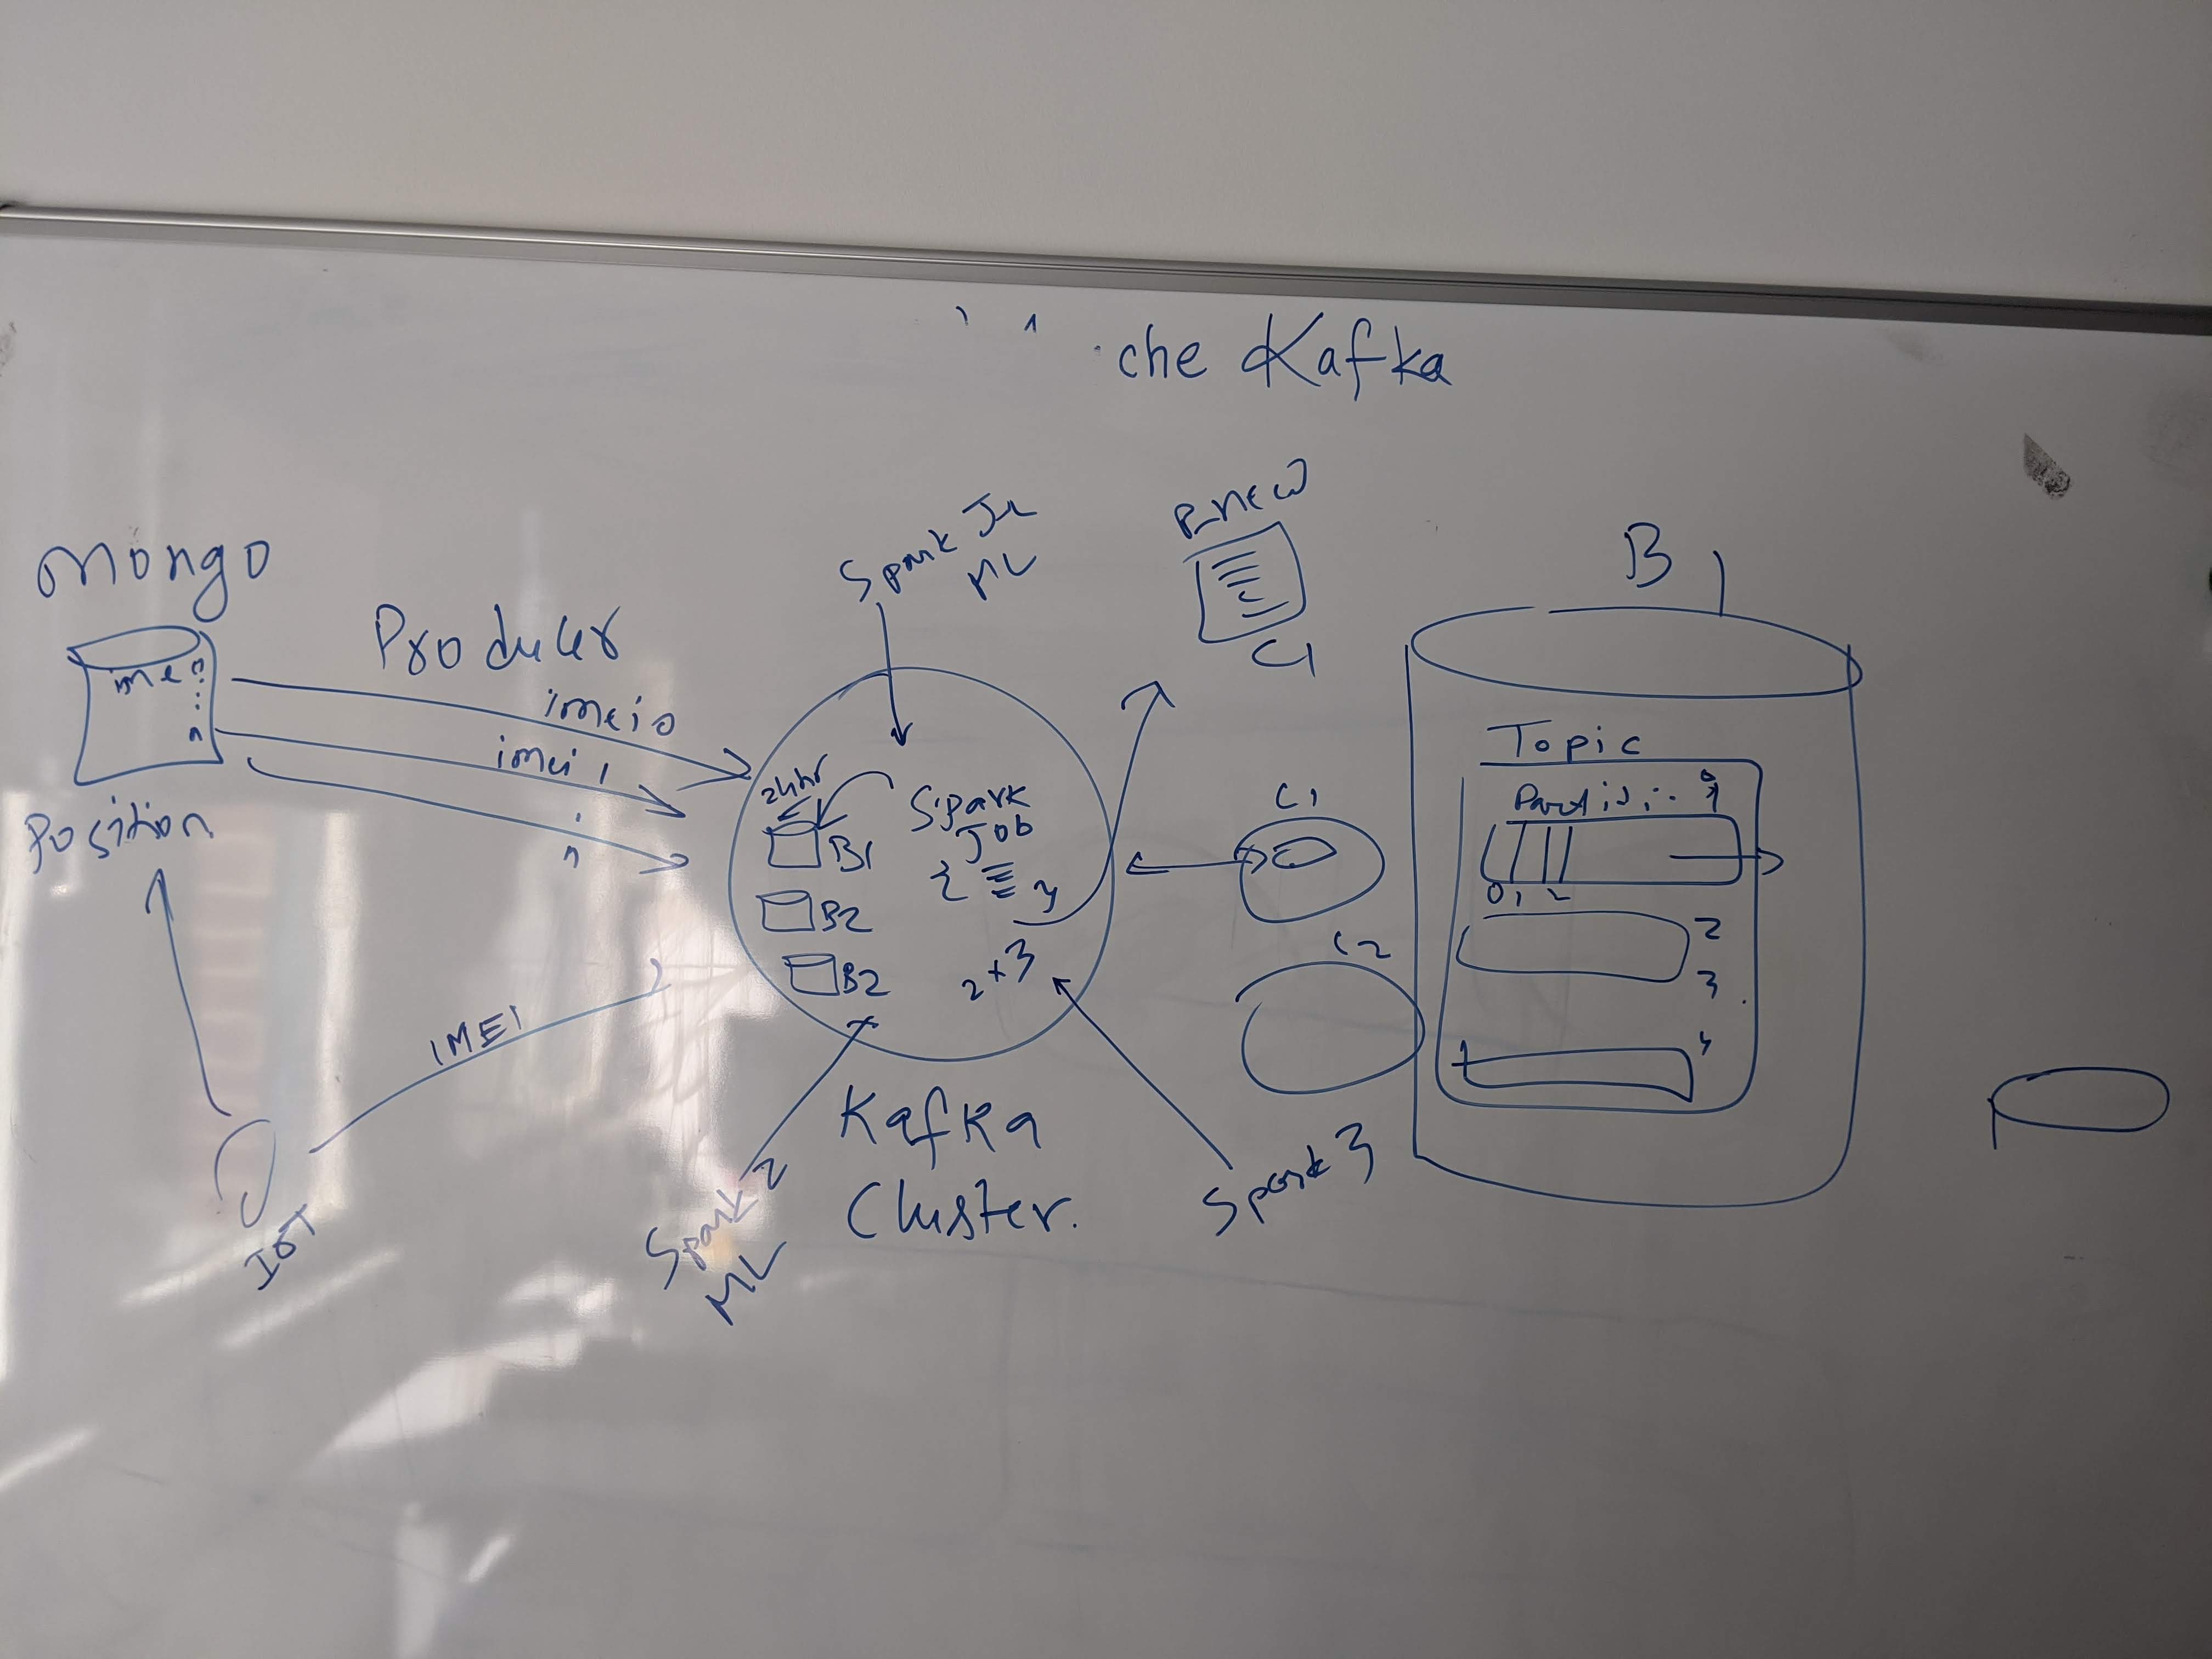 che Kafka
Mongo
imei
0
n
Position
Producer
imei 0
imei 1
n
IMEI
IOT
Spark
ML
24hr
B1
B2
B2
Spark
Job
{ }
2 + 3
Kafka
Cluster.
Spark 2
ML
Spark 3
C1
C1
C2
B1
Topic
0 1 2
2
3
4